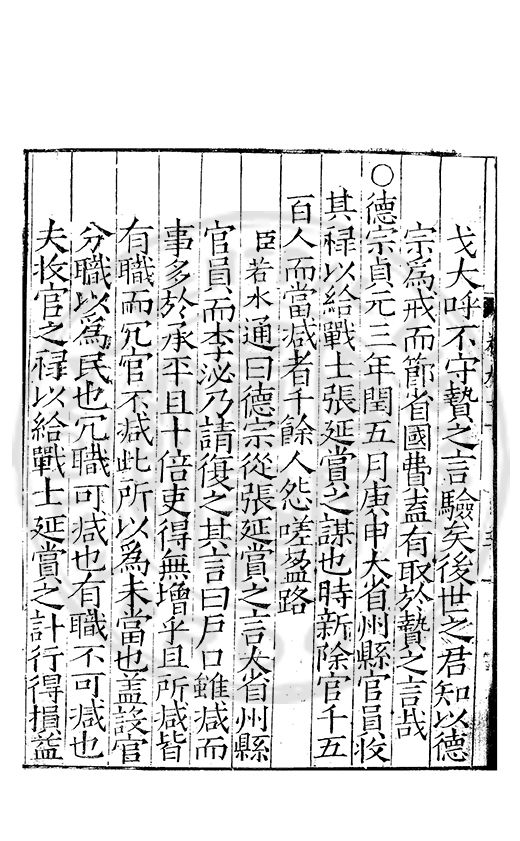 戈大呼不守贄之言驗矣後世之君知以德
宗爲戒而節省國費盍有取於贄之言哉
○德宗貞元三年閏五月庚申大省州縣官員收
其祿以給戰士張延賞之謀也時新除官千五
百人而當减者千餘人怨嗟盈路
臣若水通曰德宗從張延賞之言大省州縣
官員而李泌乃請復之其言曰戶口雖减而
事多於承平且十倍吏得無增乎且所减皆
有職而冗官不减此所以爲未當也盖設官
分職以爲民也冗職可减也有職不可减也
夫收官之祿以給戰士延賞之計行得損益